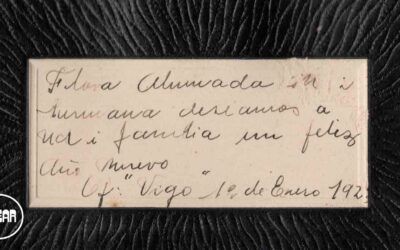 Flora Ahumada i
hermana deseamos a
Ud i familia un feliz
Año nuevo
Of. "Vigo" 1º de Enero 192
EAR